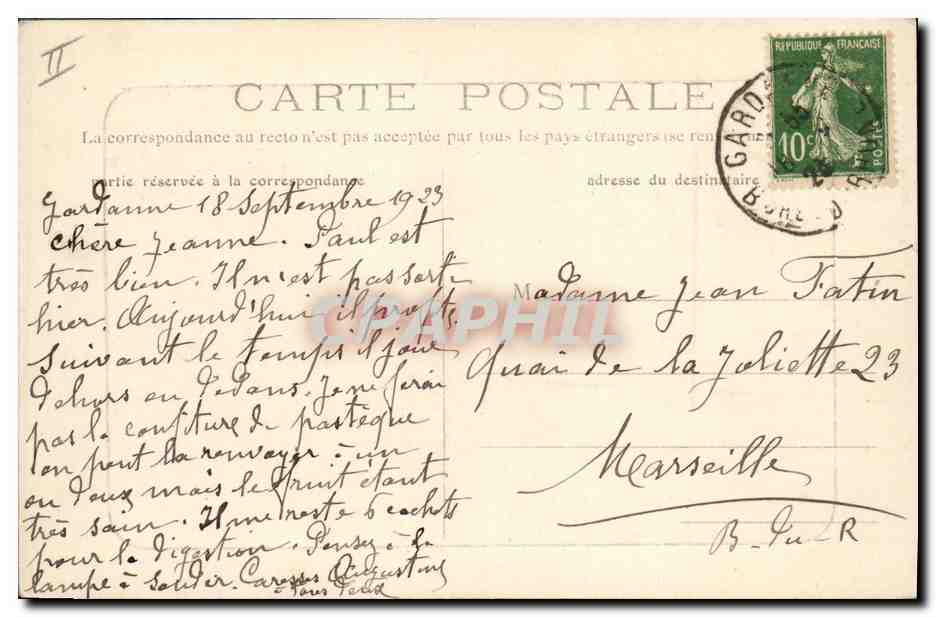 II
RÉPUBLIQUE FRANÇAISE
10c
POSTES
GARD
B. DU R
CARTE POSTALE
La correspondance au recto n'est pas acceptée par tous les pays étrangers (se ren
partie réservée à la correspondance
adresse du destinataire
Gardanne 18 Septembre 1923
chère Jeanne. Paul est
très bien. Il n'est pas sorti
hier. Aujourd'hui il profite
suivant le temps il joue
dehors ou dedans. Je ne ferai
pas la confiture de pastèque
on peut la renvoyer à un
ou deux mais le fruit étant
très sain. Il me reste 6 cachets
pour la digestion. Pensez à la
lampe à souder. Caresses Augustine
à tous deux
Madame Jean Fatin
Quai de la Joliette 23
Marseille
B. du R
CPAPHIL